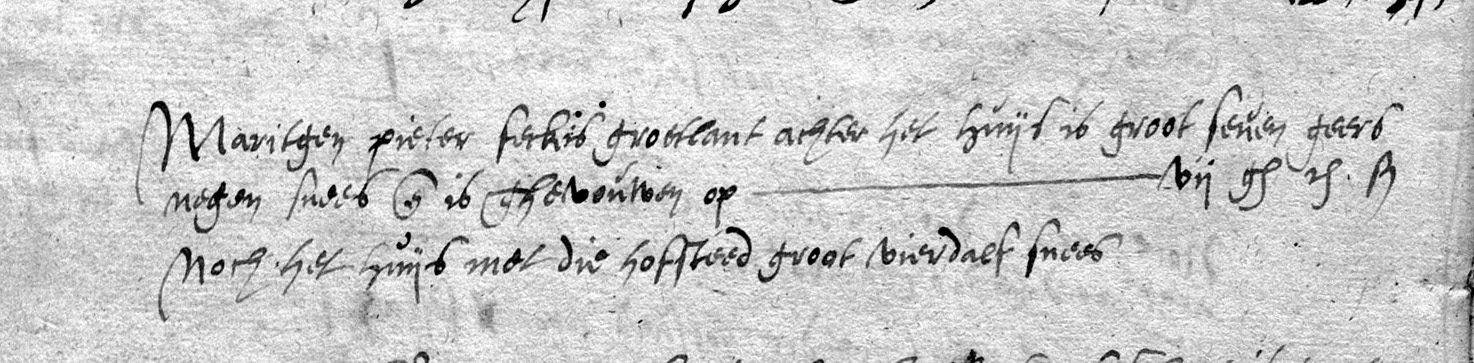 Maritgen pieter serkis grootlant achter het huijs is groot seven geers
negen snees is Ghevouwen op vij gh
Noch het huijs met die hofsteed groot vierdalf snees